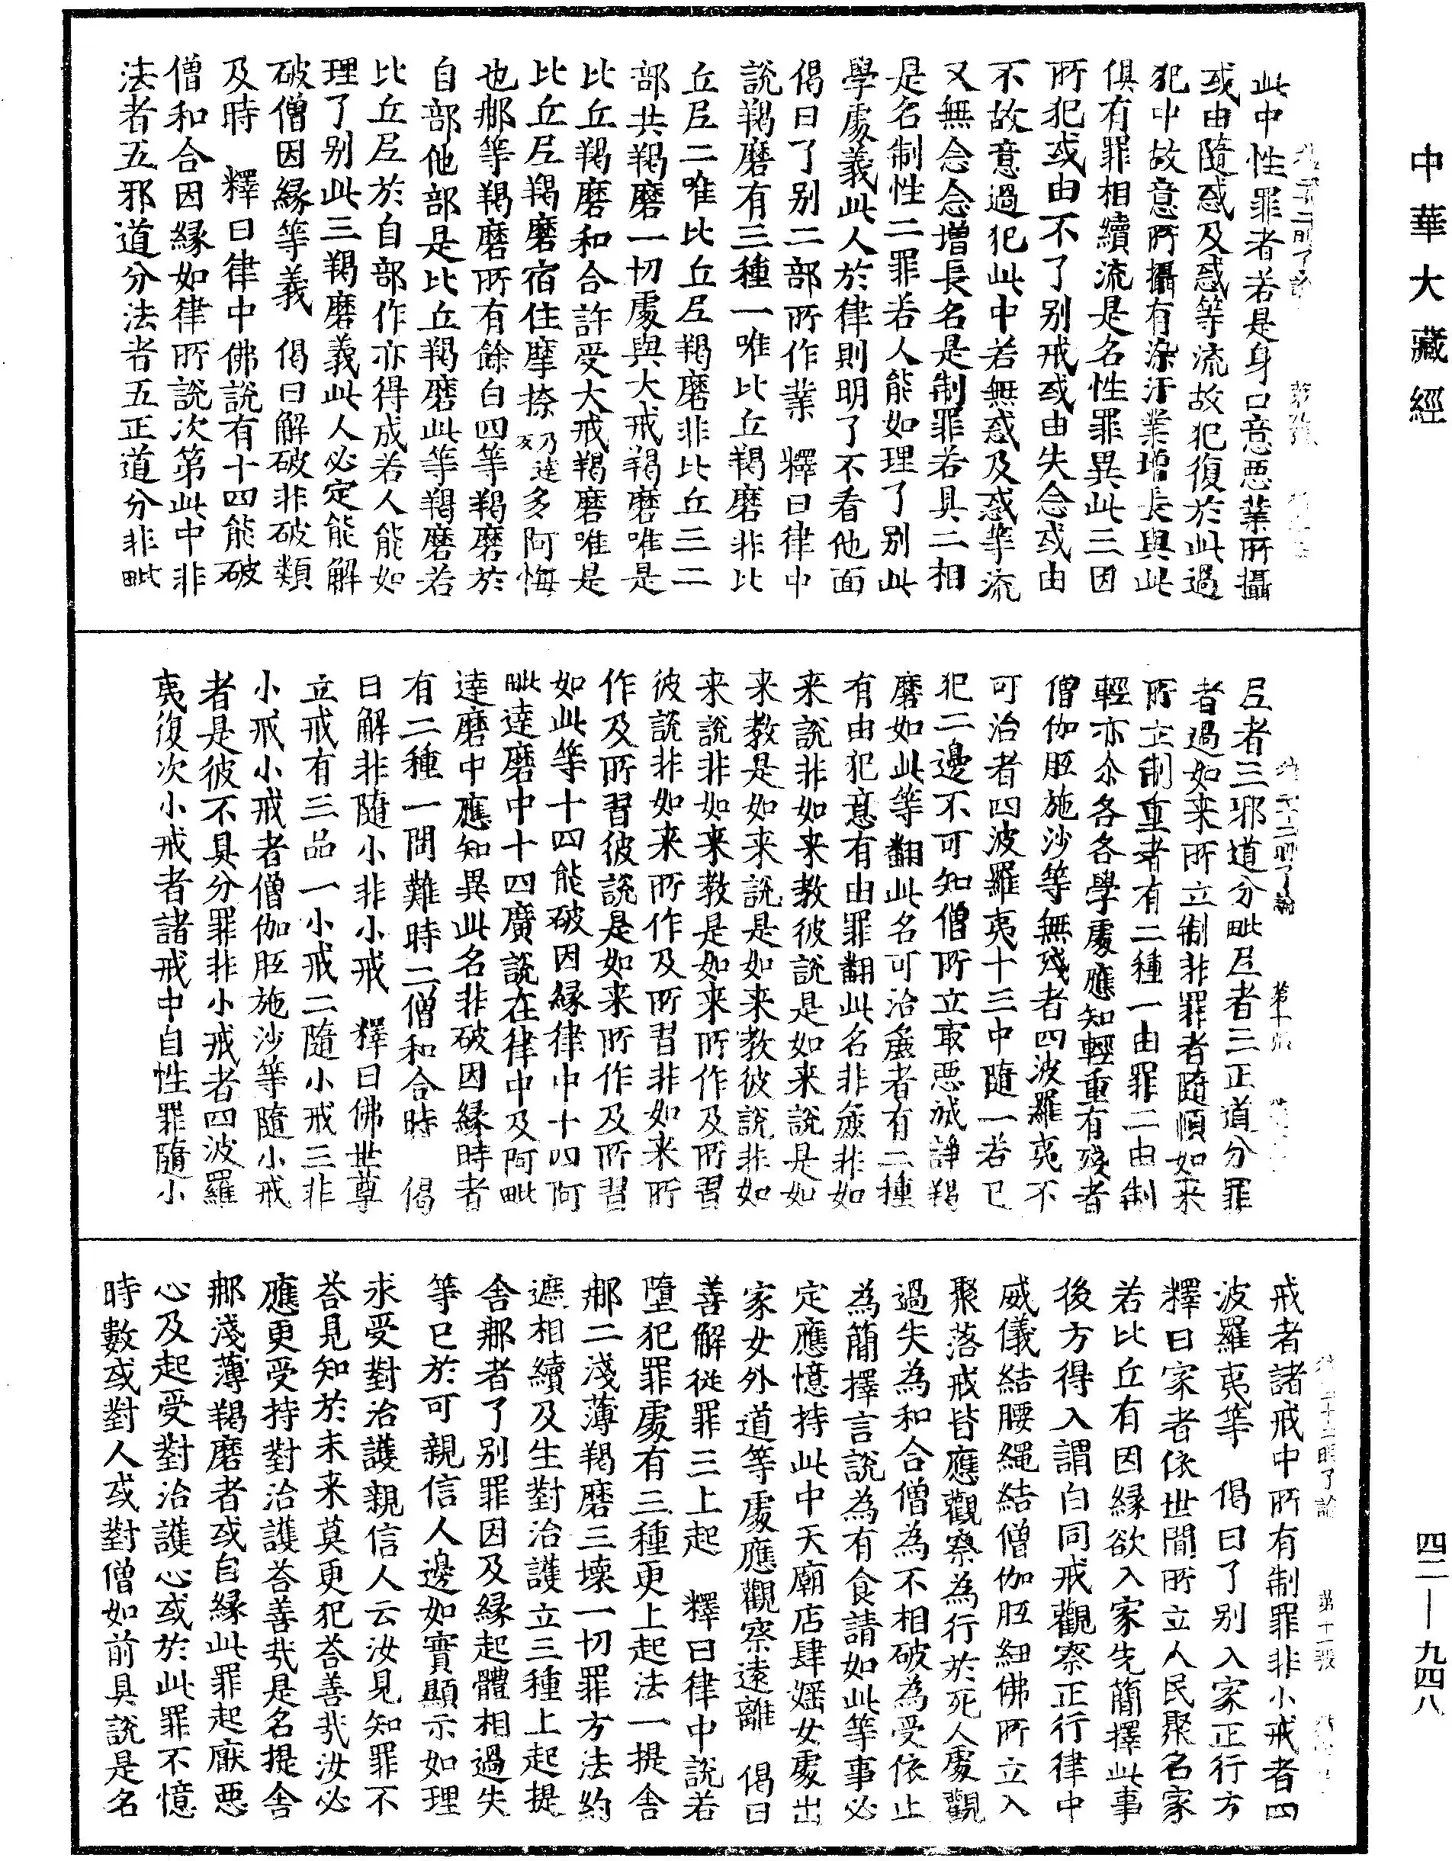 中華大藏經
此中性罪者若是身口意惡業所攝
或由隨惑及惑等流故犯復於此過
犯中故意所攝有染汙業增長與此
俱有罪相續流是名性罪異此三因
所犯或由不了別戒或由失念或由
不故意過犯此中若無惑及惑等流
又無念念增長名是制罪若具二相
是名制性二罪若人能如理了別此
學處義此人於律則明了不看他面
偈曰了別二部所作業　釋曰律中
說羯磨有三種一唯比丘羯磨非比
丘尼二唯比丘尼羯磨非比丘三二
部共羯磨一切處與大戒羯磨唯是
比丘羯磨和合許受大戒羯磨唯是
比丘尼羯磨宿住摩捺乃達反多阿悔
也郍等羯磨所有餘白四等羯磨於
自部他部是比丘羯磨此等羯磨若
比丘尼於自部作亦得成若人能如
理了別此三羯磨義此人必定能解
破僧因緣等義　偈曰解破非破類
及時　釋曰律中佛說有十四能破
僧和合因緣如律所說次第此中非
法者五邪道分法者五正道分非毗
尼者三邪道分毗尼者三正道分罪
者過如来所立制非罪者隨順如来
所立制重者有二種一由罪二由制
輕亦尒各各學處應知輕重有殘者
僧伽胝施沙等無殘者四波羅夷不
可治者四波羅夷十三中隨一若已
犯二邊不可知僧所立取惡滅諍羯
磨如此等翻此名可治麁者有二種
有由犯意有由罪翻此名非麁非如
来說非如来教彼說是如来說是如
来教是如来說是如来教彼說非如
来說非如来教是如来所作及所習
彼說非如来所作及所習非如来所
作及所習彼說是如来所作及所習
如此等十四能破因緣律中十四阿
毗達磨中十四廣說在律中及阿毗
達磨中應知異此名非破因緣時者
有二種一問難時二僧和合時　偈
曰解非隨小非小戒　釋曰佛世尊
立戒有三品一小戒二隨小戒三非
小戒小戒者僧伽胝施沙等隨小戒
者是彼不具分罪非小戒者四波羅
夷復次小戒者諸戒中自性罪隨小
戒者諸戒中所有制罪非小戒者四
波羅夷等　偈曰了別入家正行方
釋曰家者依世間所立人民聚名家
若比丘有因緣欲入家先簡擇此事
後方得入謂白同戒觀察正行律中
威儀結腰繩結僧伽胝紐佛所立入
聚落戒皆應觀察為行於死人處觀
過失為和合僧為不相破為受依止
為簡擇言說為有食請如此等事必
定應憶持此中天廟店肆婬女處出
家女外道等處應觀察遠離　偈曰
善解從罪三上起　釋曰律中說若
墮犯罪處有三種更上起法一提舍
郍二淺薄羯磨三壞一切罪方法約
遮相續及生對治護立三種上起提
舍郍者了別罪因及緣起體相過失
等已於可親信人邊如實顯示如理
求受對治護親信人云汝見知罪不
荅見知於未来莫更犯荅善㢤汝必
應更受持對治護荅善㢤是名提舍
郍淺薄羯磨者或自緣此罪起厭惡
心及起受對治護心或於此罪不憶
時數或對人或對僧如前具說是名
四二—九四八